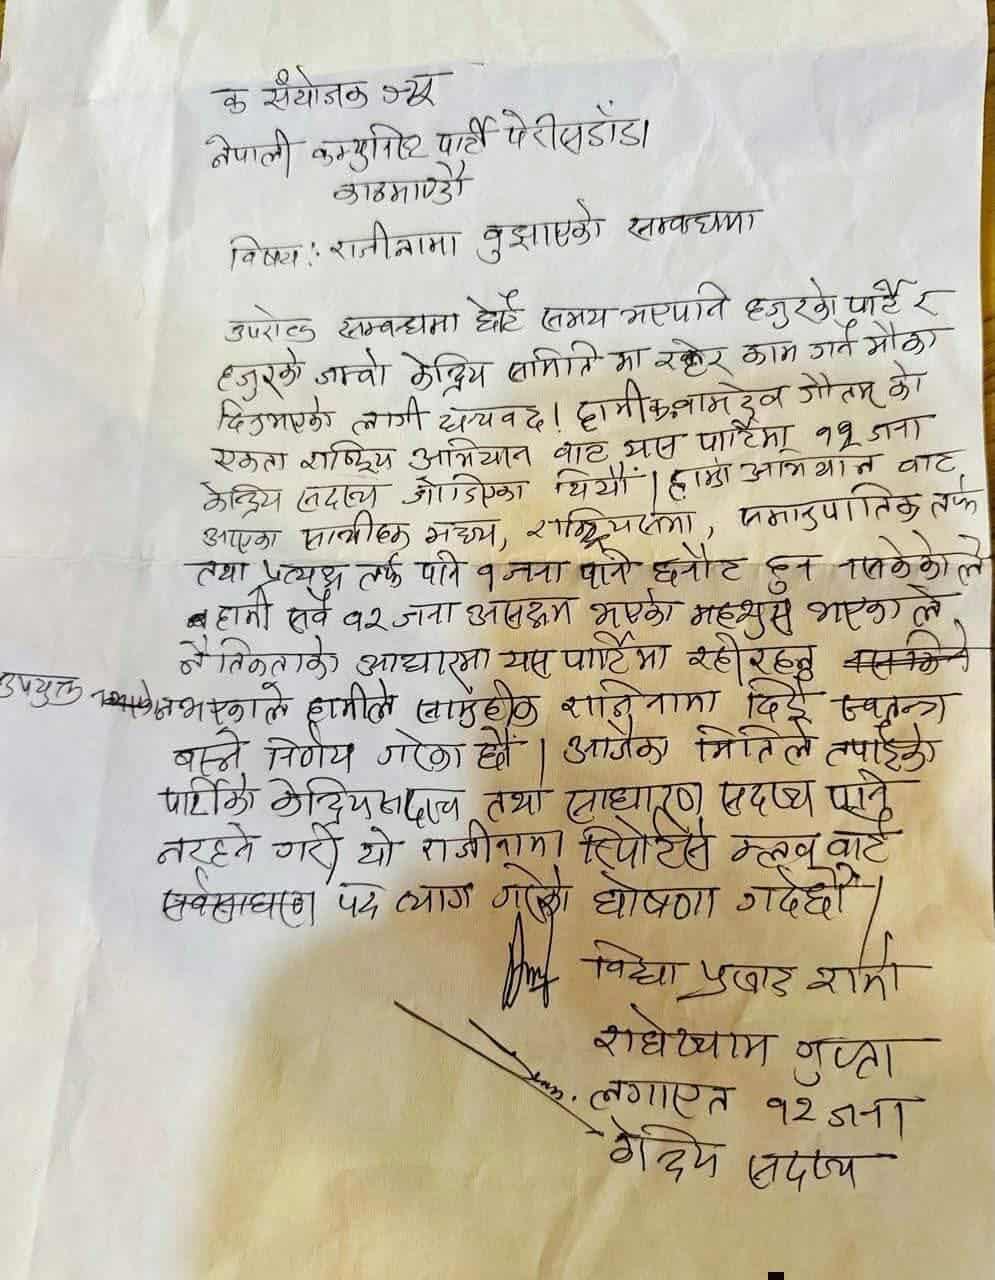 क संयोजक ज्यू
नेपाली कम्युनिष्ट पार्टी पेरीसडाँडा
काठमाण्डौ
विषय : राजीनामा वुझाएको सम्वन्धमा
उपरोक्त सम्वन्धमा छोटै समय भएपनि हजुरको पार्टि र
हजुरको जम्वो केन्द्रिय समिति मा रहेर काम गर्ने मौका
दिनुभएको लागी धन्यवाद। हामी क. वामदेव गौतम् को
एकता राष्ट्रिय अभियान वाट यस पार्टिमा १२ जना
केन्द्रिय सदस्य जोडिएका थियौं। हाम्रो अभियान वाट
आएका साथीहरु मध्य, राष्ट्रियसभा, समानुपातिक तर्फ
तथा प्रत्यक्ष तर्फ पनि १ जना पनि छनौट हुन नसकेकोले
हामी सवै १२ जना असक्षम भएको महशुस भएकाले
नैतिकताको आधारमा यस पार्टिमा रहीरहनु
उपयुक्त नभएकाले हामीले सामुहीक राजिनामा दिई स्वतन्त्र
वस्ने निर्णय गरेका छौं। आजैका मितिले तपाईको
पार्टीको केन्द्रिय सदस्य तथा साधारण सदस्य पनि
नरहने गरी यो राजीनामा रिपोर्टर्स क्लव वाट
सर्वसाधारण पद त्याग गरेको घोषणा गर्दछौं।
विद्या प्रसाद शर्मा
राधेश्याम गुप्ता
लगाएत १२ जना
केन्द्रिय सदस्य